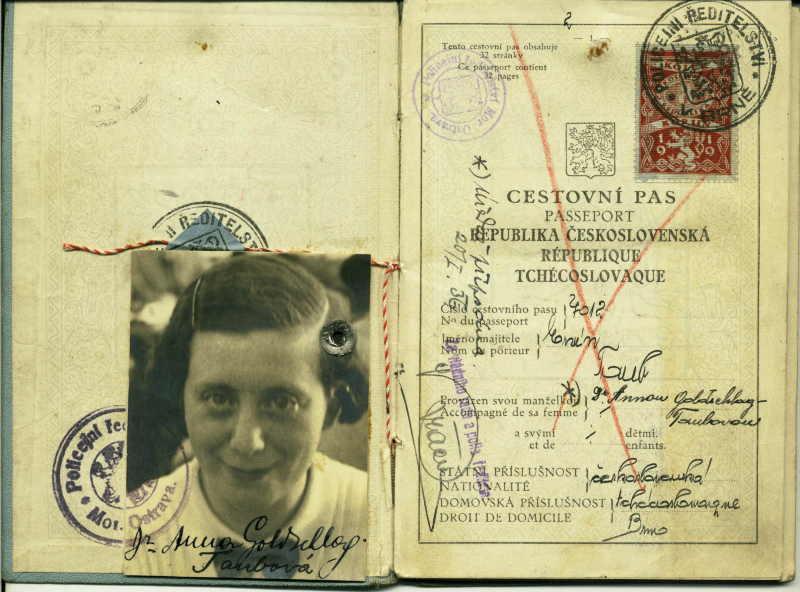 Policejní ře
Mor. Ostrava.
Dr Anna Goldschlag-
Taubová
2
— 1 —
Tento cestovní pas obsahuje
32 stránky
Ce passeport contient
32 pages
Policejní ředitelství
Mor. Ostrava
POLICEJNÍ ŘEDITELSTVÍ
19 19
CESTOVNÍ PAS
PASSEPORT
REPUBLIKA ČESKOSLOVENSKÁ
RÉPUBLIQUE
TCHÉCOSLOVAQUE
Číslo cestovního pasu 7012
No du passeport
Jméno majitele Ervín
Nom du porieur
Taub
Provázen svou manželkou *) Dr Annou Goldschlag-
Accompagné de sa femme Taubovou
a svými / dětmi.
et de enfants.
STÁTNÍ PŘÍSLUŠNOST československá
NATIONALITÉ
DOMOVSKÁ PŘÍSLUŠNOST tchécoslovaque
DROIT DE DOMICILE Brno